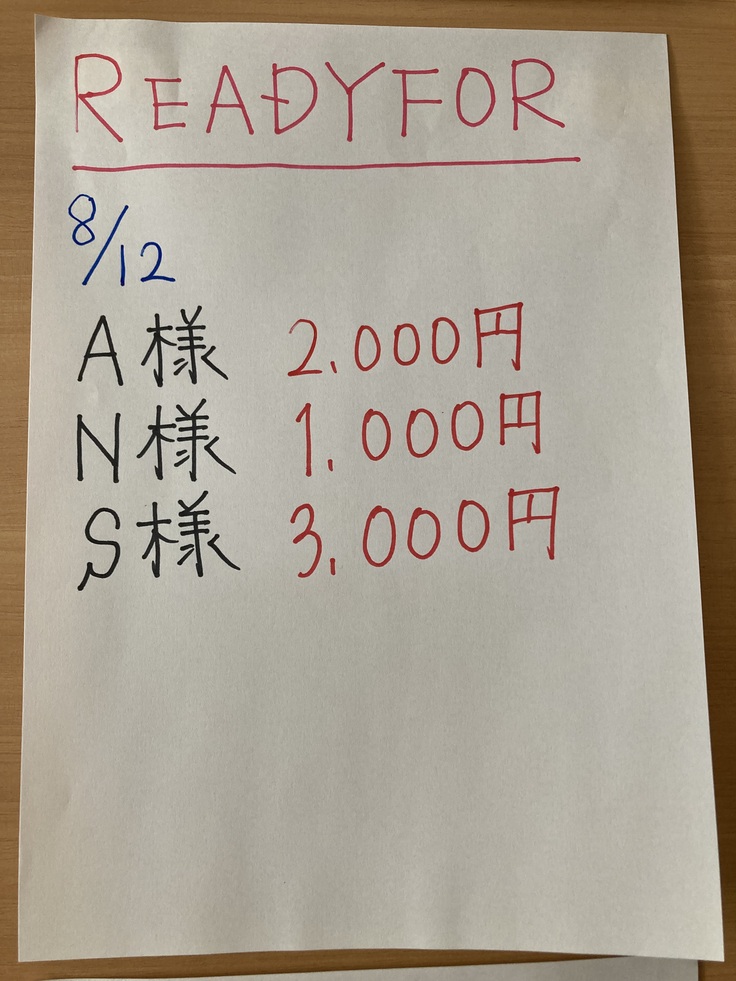 READYFOR
8/12
A様 2.000円
N様 1.000円
S様 3.000円